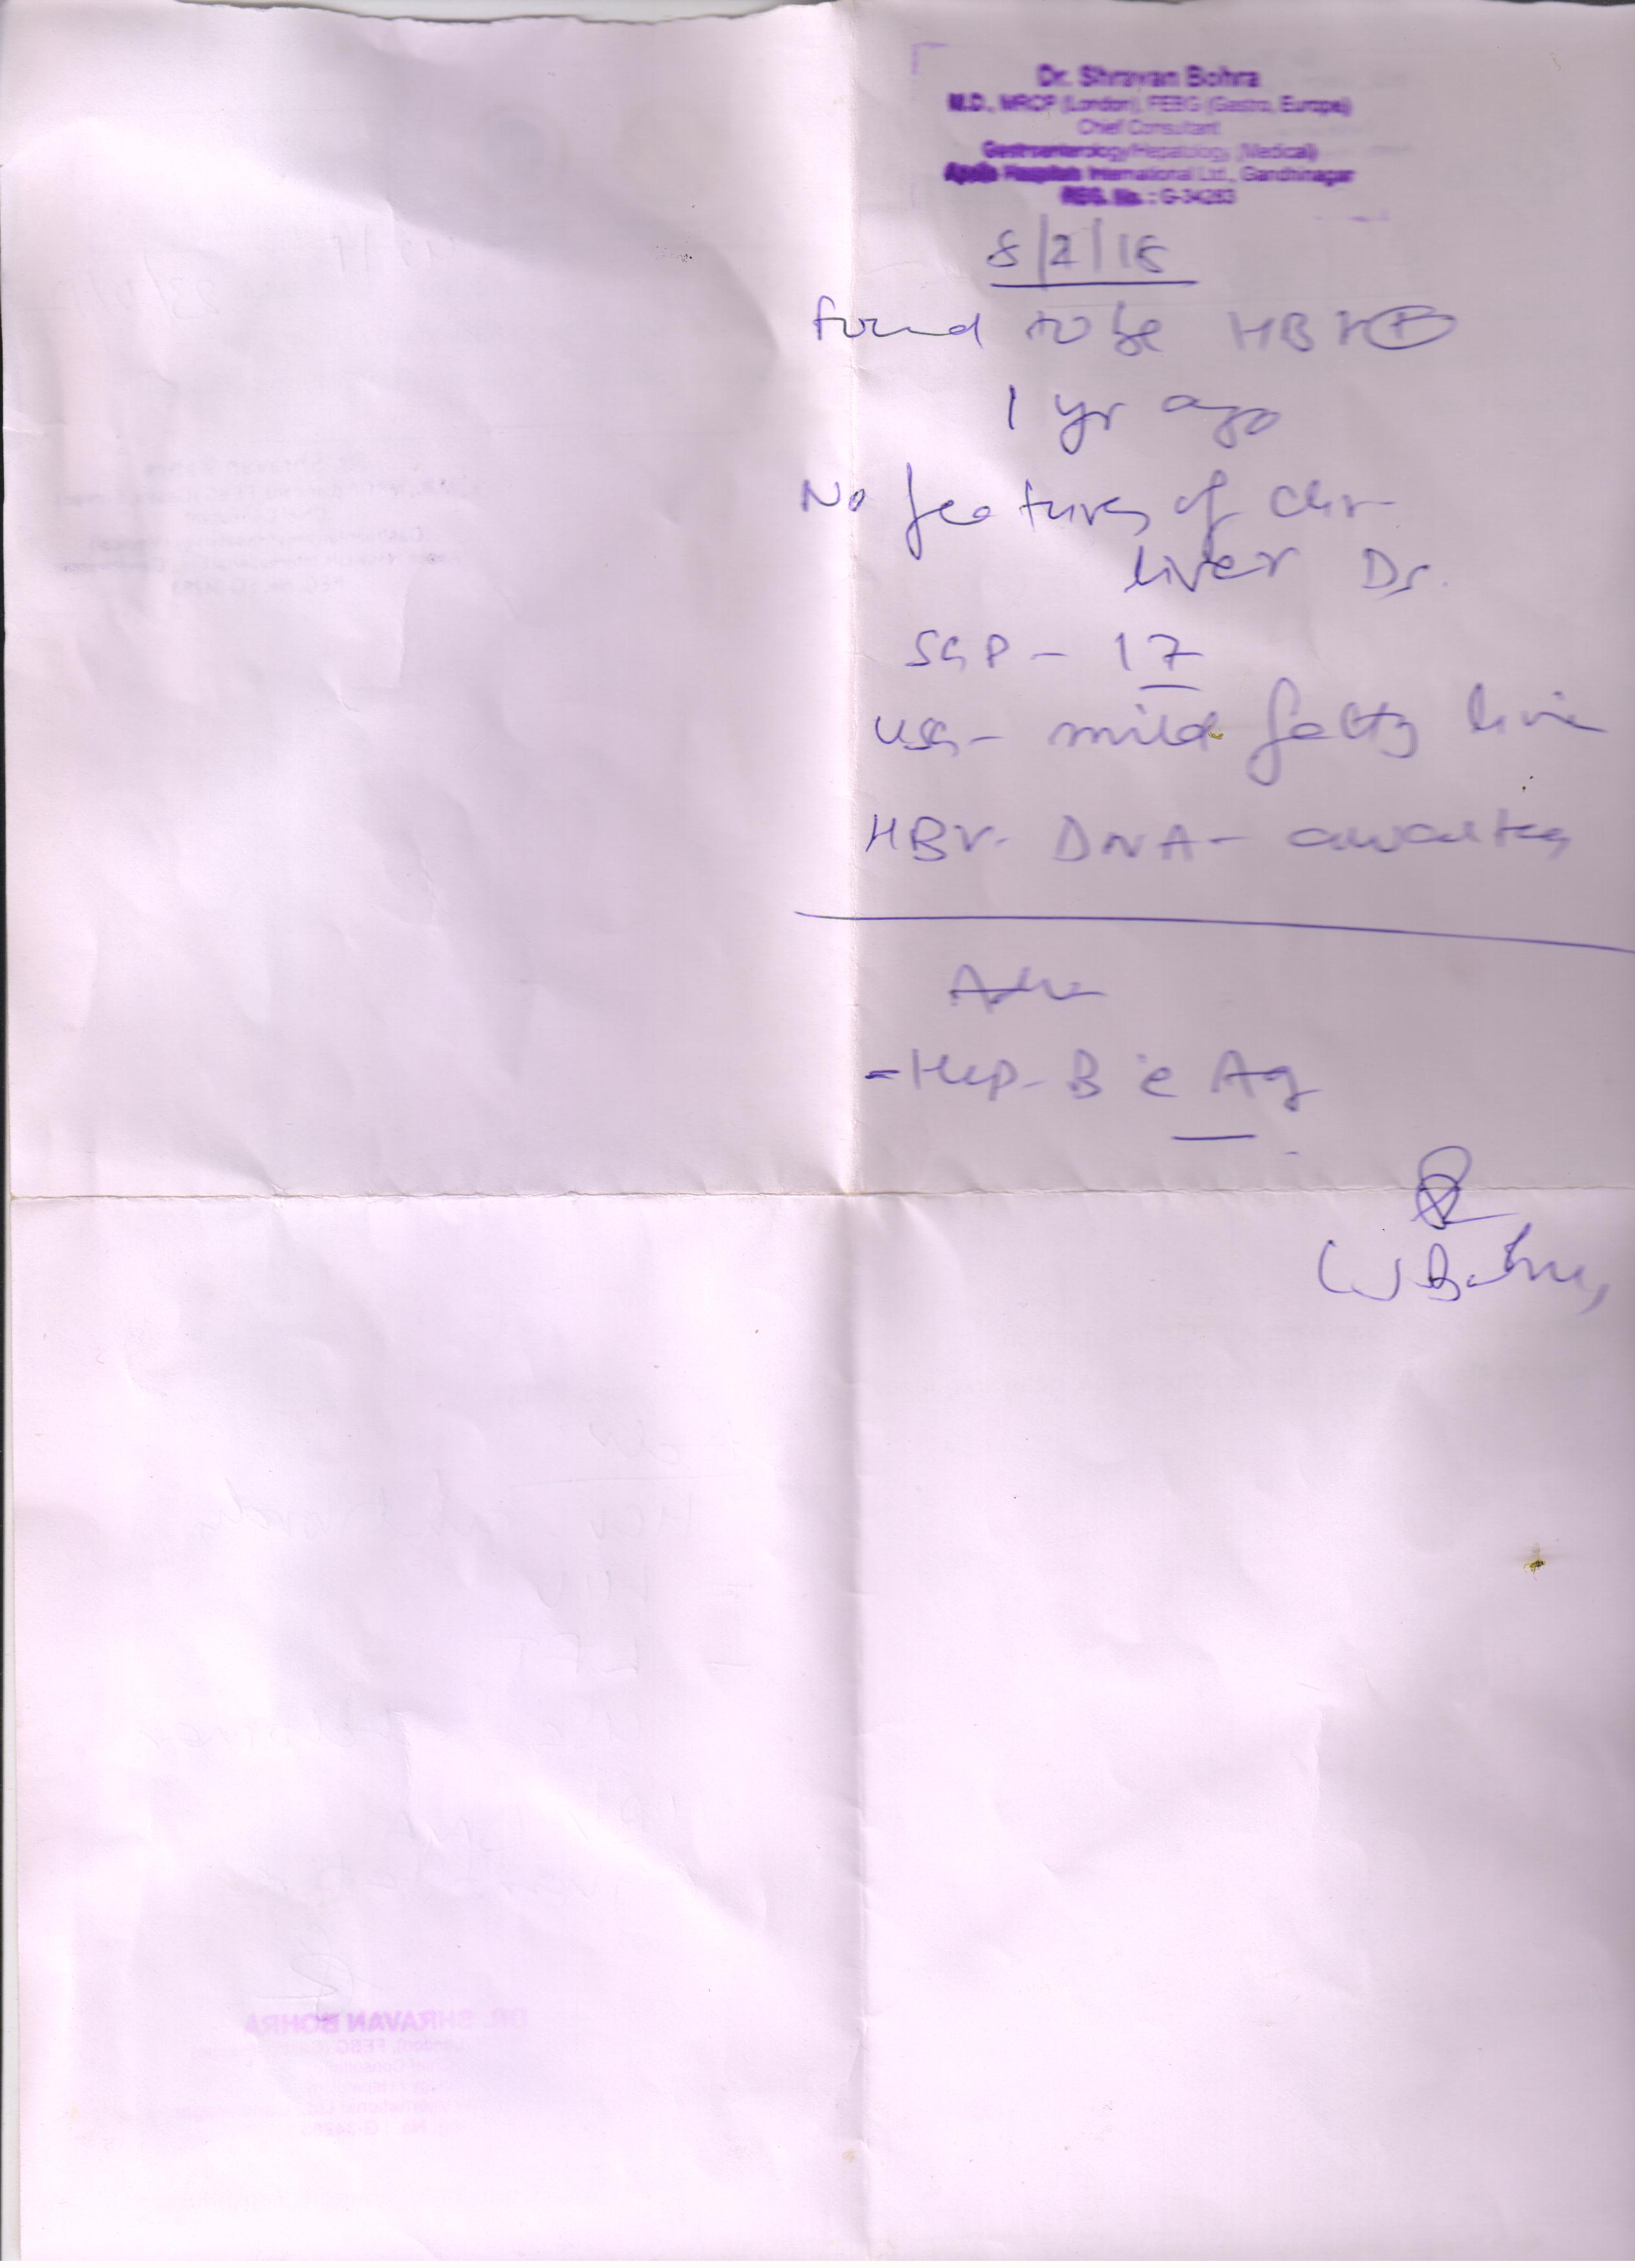 Dr. Shravan Bohra
M.D., MRCP (London), FEBG (Gastro, Europe)
Chief Consultant
Gastroenterology/Hepatology (Medical)
Apollo Hospitals International Ltd., Gandhinagar
REG. No. : G-34283
8/2/18
found to be HBV +
1 yr ago
No features of chr-
liver Ds.
SGP - 17
USG - mild fatty liver
HBV - DNA - awaited
Adv
- Hep - B e Ag
DR. SHRAVAN BOHRA